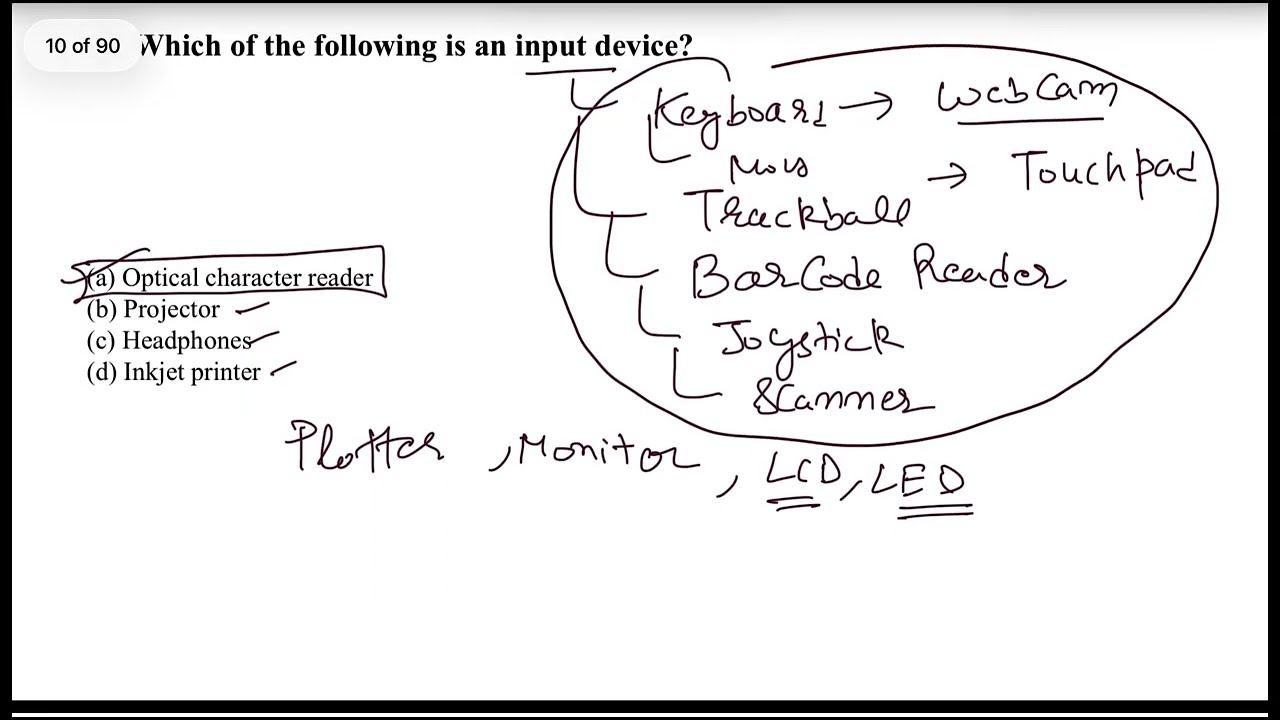 10 of 90
Which of the following is an input device?
Keyboard → WebCam
Mous → Touchpad
Trackball
BarCode Reader
Joystick
Scanner
(a) Optical character reader
(b) Projector
(c) Headphones
(d) Inkjet printer
Plotter, Monitor, LCD, LED